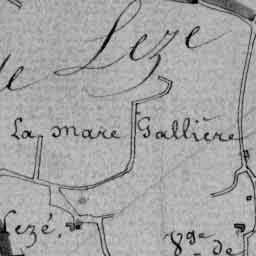 Leze
de
La mare Gallière
Lezé.
Vge de